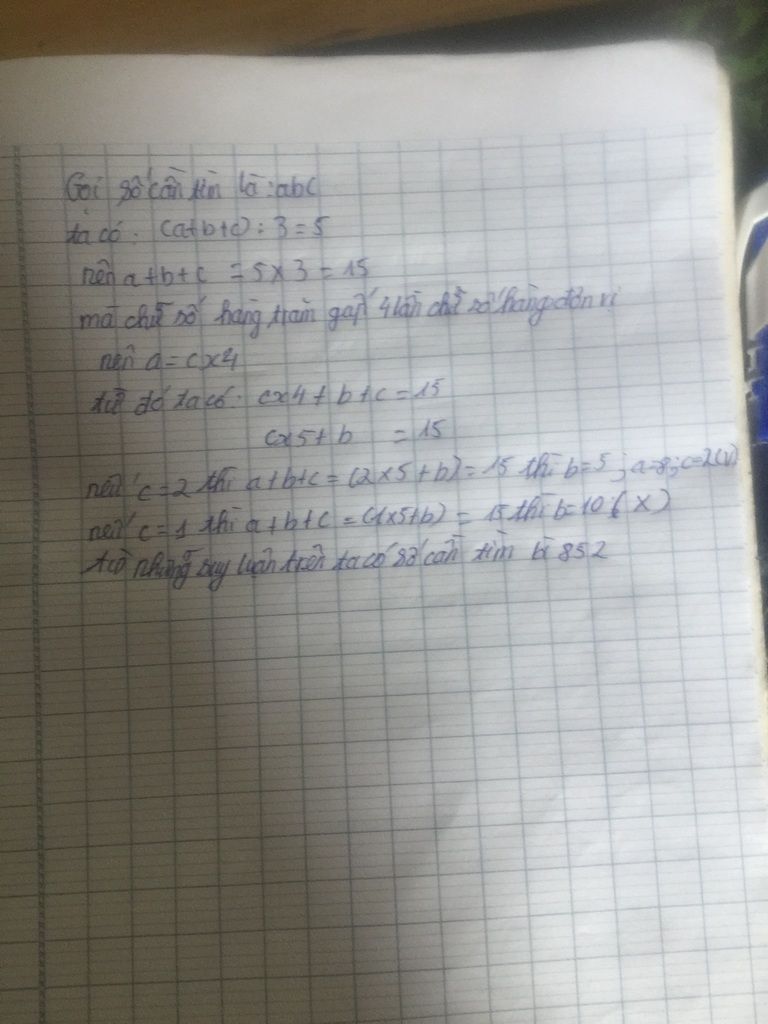 Gọi số cần tìm là : abc
ta có : (a+b+c) : 3 = 5
nên a+b+c = 5 x 3 = 15
mà chữ số hàng trăm gấp 4 lần chữ số hàng đơn vị
nên a = c x 4
từ đó ta có : c x 4 + b + c = 15
c x 5 + b = 15
nếu c = 2 thì a + b + c = (2 x 5 + b) = 15 thì b = 5 ; a = 8 ; c = 2 (v)
nếu c = 1 thì a + b + c = (1 x 5 + b) = 15 thì b = 10 ( x )
từ những suy luận trên ta có số cần tìm là 852